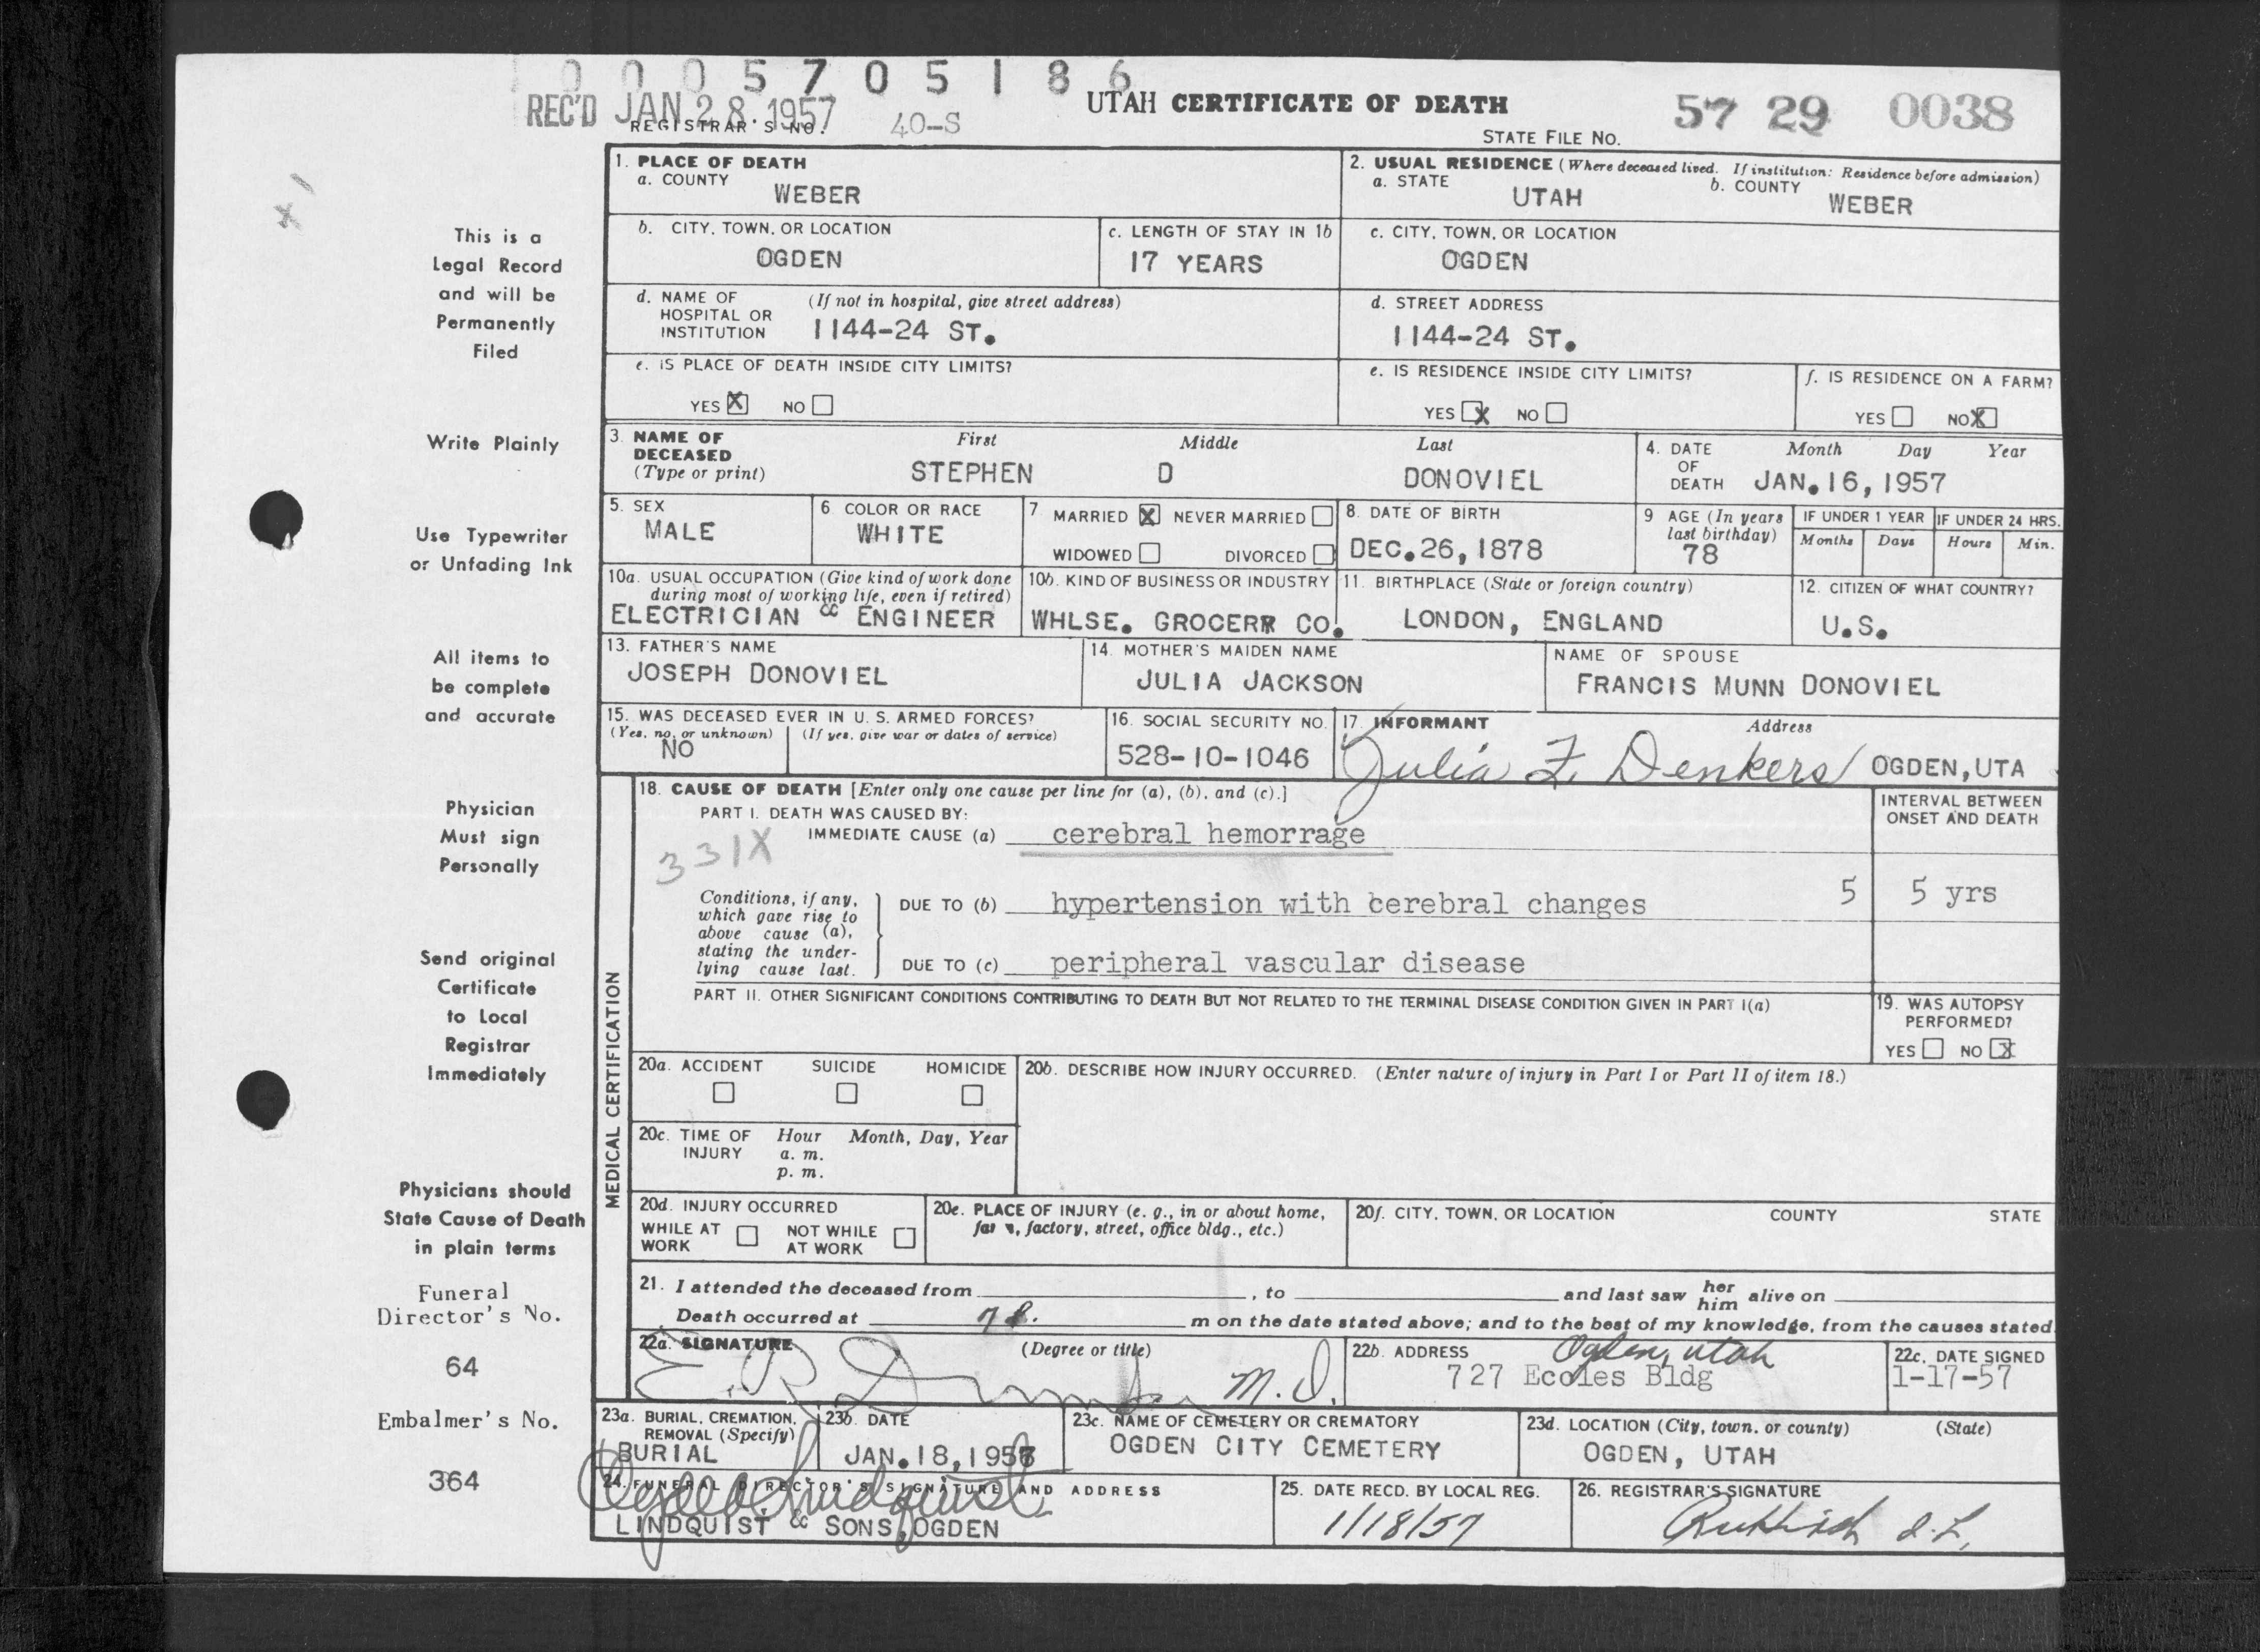 0005705186
REC'D JAN 28 1957
REGISTRAR'S NO. 40-S
UTAH CERTIFICATE OF DEATH
57 29 0038
STATE FILE NO.
This is a
Legal Record
and will be
Permanently
Filed
Write Plainly
Use Typewriter
or Unfading Ink
All items to
be complete
and accurate
Physician
Must sign
Personally
Send original
Certificate
to Local
Registrar
Immediately
Physicians should
State Cause of Death
in plain terms
Funeral
Director's No.
64
Embalmer's No.
364
1. PLACE OF DEATH
a. COUNTY
WEBER
2. USUAL RESIDENCE (Where deceased lived. If institution: Residence before admission)
a. STATE
UTAH
b. COUNTY
WEBER
b. CITY, TOWN, OR LOCATION
OGDEN
c. LENGTH OF STAY IN 1b
17 YEARS
c. CITY, TOWN, OR LOCATION
OGDEN
d. NAME OF HOSPITAL OR INSTITUTION
(If not in hospital, give street address)
1144-24 ST.
d. STREET ADDRESS
1144-24 ST.
e. IS PLACE OF DEATH INSIDE CITY LIMITS?
YES X NO
e. IS RESIDENCE INSIDE CITY LIMITS?
YES X NO
f. IS RESIDENCE ON A FARM?
YES NO X
3. NAME OF DECEASED
(Type or print)
First Middle Last
STEPHEN D DONOVIEL
4. DATE OF DEATH
Month Day Year
JAN. 16, 1957
5. SEX
MALE
6. COLOR OR RACE
WHITE
7. MARRIED X NEVER MARRIED
WIDOWED DIVORCED
8. DATE OF BIRTH
DEC. 26, 1878
9 AGE (In years last birthday)
78
IF UNDER 1 YEAR
Months Days
IF UNDER 24 HRS.
Hours Min.
10a. USUAL OCCUPATION (Give kind of work done during most of working life, even if retired)
ELECTRICIAN & ENGINEER
10b. KIND OF BUSINESS OR INDUSTRY
WHLSE. GROCERR CO.
11. BIRTHPLACE (State or foreign country)
LONDON, ENGLAND
12. CITIZEN OF WHAT COUNTRY?
U.S.
13. FATHER'S NAME
JOSEPH DONOVIEL
14. MOTHER'S MAIDEN NAME
JULIA JACKSON
NAME OF SPOUSE
FRANCIS MUNN DONOVIEL
15. WAS DECEASED EVER IN U. S. ARMED FORCES?
(Yes, no, or unknown) (If yes, give war or dates of service)
NO
16. SOCIAL SECURITY NO.
528-10-1046
17. INFORMANT Address
Julia F. Denkers OGDEN, UTA
MEDICAL CERTIFICATION
18. CAUSE OF DEATH [Enter only one cause per line for (a), (b), and (c).]
PART I. DEATH WAS CAUSED BY:
IMMEDIATE CAUSE (a) cerebral hemorrage
331X
INTERVAL BETWEEN ONSET AND DEATH
Conditions, if any, which gave rise to above cause (a), stating the underlying cause last.
DUE TO (b) hypertension with cerebral changes 5 5 yrs
DUE TO (c) peripheral vascular disease
PART II. OTHER SIGNIFICANT CONDITIONS CONTRIBUTING TO DEATH BUT NOT RELATED TO THE TERMINAL DISEASE CONDITION GIVEN IN PART I(a)
19. WAS AUTOPSY PERFORMED?
YES NO X
20a. ACCIDENT SUICIDE HOMICIDE
20b. DESCRIBE HOW INJURY OCCURRED. (Enter nature of injury in Part I or Part II of item 18.)
20c. TIME OF INJURY
Hour Month, Day, Year
a. m.
p. m.
20d. INJURY OCCURRED
WHILE AT WORK NOT WHILE AT WORK
20e. PLACE OF INJURY (e. g., in or about home, farm, factory, street, office bldg., etc.)
20f. CITY, TOWN, OR LOCATION COUNTY STATE
21. I attended the deceased from , to and last saw her him alive on
Death occurred at m on the date stated above; and to the best of my knowledge, from the causes stated
22a. SIGNATURE (Degree or title)
M.D.
22b. ADDRESS
Ogden, Utah
727 Eccles Bldg
22c. DATE SIGNED
1-17-57
23a. BURIAL, CREMATION, REMOVAL (Specify)
BURIAL
23b. DATE
JAN. 18, 1957
23c. NAME OF CEMETERY OR CREMATORY
OGDEN CITY CEMETERY
23d. LOCATION (City, town, or county) (State)
OGDEN, UTAH
24. FUNERAL DIRECTOR'S SIGNATURE AND ADDRESS
LINDQUIST & SONS, OGDEN
25. DATE RECD. BY LOCAL REG.
1/18/57
26. REGISTRAR'S SIGNATURE